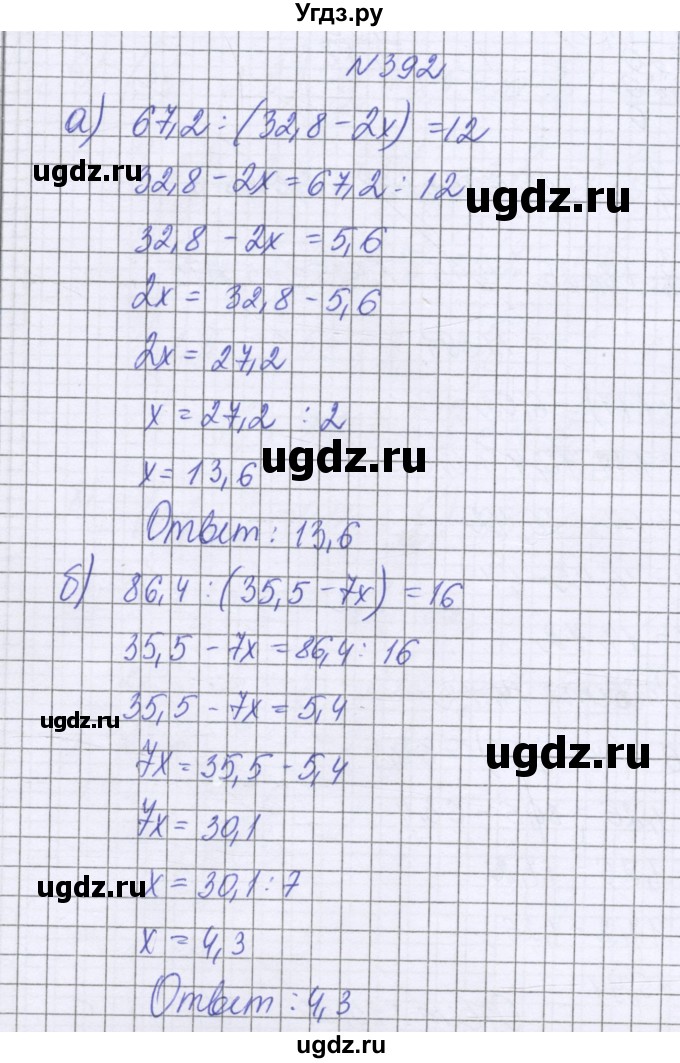 Угдз.ру
N392
а) 67,2 : (32,8 - 2x) = 12
ugdz.ru
32,8 - 2x = 67,2 : 12
ugdz.ru
32,8 - 2x = 5,6
2x = 32,8 - 5,6
2x = 27,2
x = 27,2 : 2
ugdz.ru
x = 13,6
Ответ: 13,6
б) 86,4 : (35,5 - 7x) = 16
35,5 - 7x = 86,4 : 16
35,5 - 7x = 5,4
ugdz.ru
ugdz.ru
7x = 35,5 - 5,4
7x = 30,1
ugdz.ru
x = 30,1 : 7
x = 4,3
Ответ: 4,3
ugdz.ru